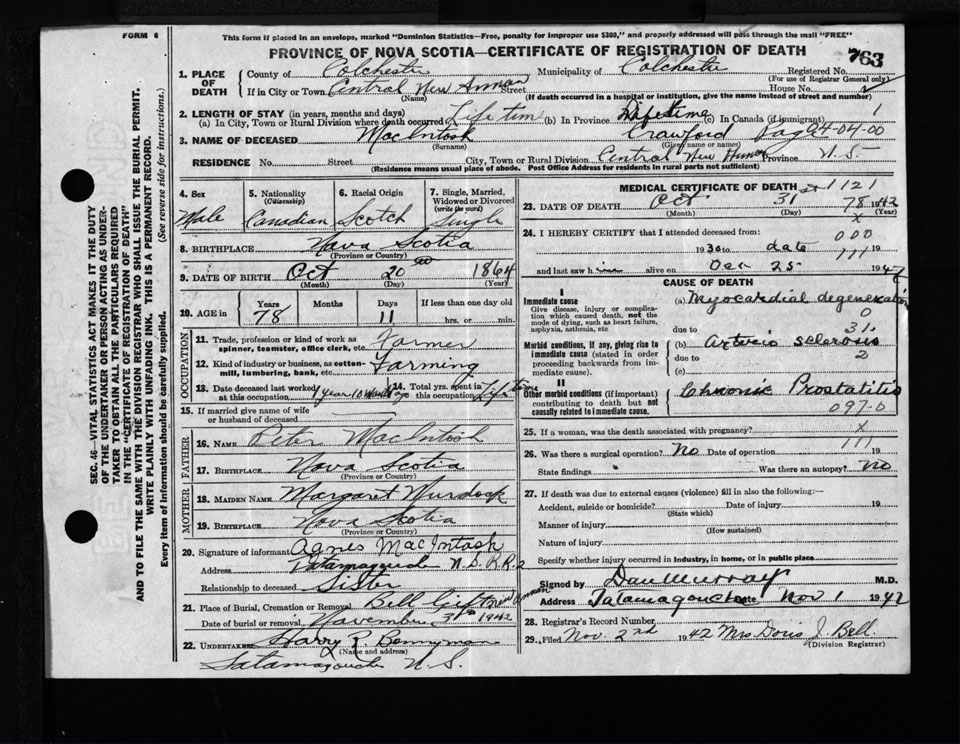 FORM 6
This form if placed in an envelope, marked "Dominion Statistics—Free, penalty for improper use $300," and properly addressed will pass through the mail "FREE"
PROVINCE OF NOVA SCOTIA—CERTIFICATE OF REGISTRATION OF DEATH
763
1. PLACE OF DEATH
County of Colchester Municipality of Colchester Registered No.
(For use of Registrar General only)
If in City or Town Central New Annan Street House No.
(Name) (If death occurred in a hospital or institution, give the name instead of street and number)
2. LENGTH OF STAY (in years, months and days)
(a) In City, Town or Rural Division where death occurred Life time (b) In Province Lifetime (c) In Canada (if immigrant) 1
3. NAME OF DECEASED MacIntosh Crawford 94-04-00
(Surname) (Given name or names)
RESIDENCE No. Street City, Town or Rural Division Central New Annan Province N.S.
(Residence means usual place of abode. Post Office Address for residents in rural parts not sufficient)
4. Sex Male
5. Nationality (Citizenship) Canadian
6. Racial Origin Scotch
7. Single, Married, Widowed or Divorced (write the word) Single
8. BIRTHPLACE Nova Scotia
(Province or Country)
9. DATE OF BIRTH Oct 20 1864
(Month) (Day) (Year)
10. AGE in Years 78 Months Days 11 If less than one day old hrs. or min.
OCCUPATION
11. Trade, profession or kind of work as spinner, teamster, office clerk, etc. Farmer
12. Kind of industry or business, as cotton-mill, lumbering, bank, etc. Farming
13. Date deceased last worked at this occupation 1 year 10 months ago
14. Total yrs. spent in this occupation Lifetime
15. If married give name of wife or husband of deceased
FATHER
16. NAME Peter MacIntosh
17. BIRTHPLACE Nova Scotia
(Province or Country)
MOTHER
18. MAIDEN NAME Margaret Murdock
19. BIRTHPLACE Nova Scotia
(Province or Country)
20. Signature of informant Agnes MacIntosh
Address Tatamagouche N.S. R.R.2
Relationship to deceased Sister
21. Place of Burial, Cremation or Removal Bell
Date of burial or removal November 3rd 1942
22. UNDERTAKER Harry R. Bonnyman
(Name and address)
Tatamagouche N.S.
MEDICAL CERTIFICATE OF DEATH
1121
23. DATE OF DEATH Oct 31 1942
(Month) (Day) (Year)
78
x
24. I HEREBY CERTIFY that I attended deceased from:
000
1930 to date 19
111
and last saw him alive on Oct 25 1942
CAUSE OF DEATH
I
Immediate cause
Give disease, injury or complication which caused death, not the mode of dying, such as heart failure, asphyxia, asthenia, etc.
(a) Myocardial degeneration
0
due to 31
Morbid conditions, if any, giving rise to immediate cause (stated in order proceeding backwards from immediate cause).
(b) Arterio sclerosis
due to 2
(c)
II
Other morbid conditions (if important) contributing to death but not causally related to immediate cause.
Chronic Prostatitis
097-0
25. If a woman, was the death associated with pregnancy? x
111
26. Was there a surgical operation? No Date of operation 19
State findings Was there an autopsy? No
27. If death was due to external causes (violence) fill in also the following:—
Accident, suicide or homicide? Date of injury 19
(State which)
Manner of injury
(How sustained)
Nature of injury
Specify whether injury occurred in industry, in home, or in public place
Signed by Dan Murray M.D.
Address Tatamagouche Date Nov 1 1942
28. Registrar's Record Number
29. Filed Nov. 2nd 1942 Mrs Doris J. Bell
(Division Registrar)
SEC. 46—VITAL STATISTICS ACT MAKES IT THE DUTY OF THE UNDERTAKER OR PERSON ACTING AS UNDERTAKER TO OBTAIN ALL THE PARTICULARS REQUIRED IN THE "CERTIFICATE OF REGISTRATION OF DEATH"
AND TO FILE THE SAME WITH THE DIVISION REGISTRAR WHO SHALL ISSUE THE BURIAL PERMIT.
WRITE PLAINLY WITH UNFADING INK. THIS IS A PERMANENT RECORD.
Every item of information should be carefully supplied. (See reverse side for instructions.)